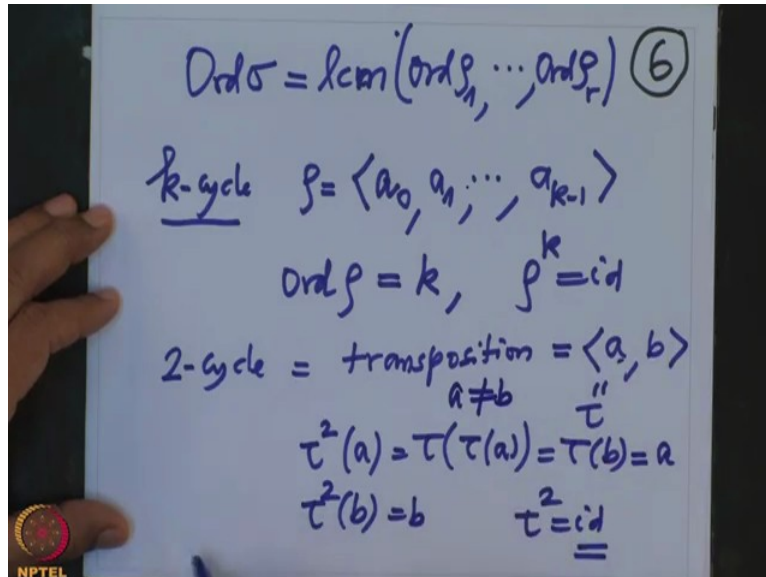 Ordσ = lcm(ordρ₁, ⋯, Ordρᵣ) ⑥
k-cycle ρ = ⟨a₀, a₁, ⋯, aₖ₋₁⟩
ordρ = k, ρᵏ = id
2-cycle = transposition = ⟨a, b⟩
a≠b τ"
τ²(a) = τ(τ(a)) = τ(b) = a
τ²(b) = b τ² = id
NPTEL